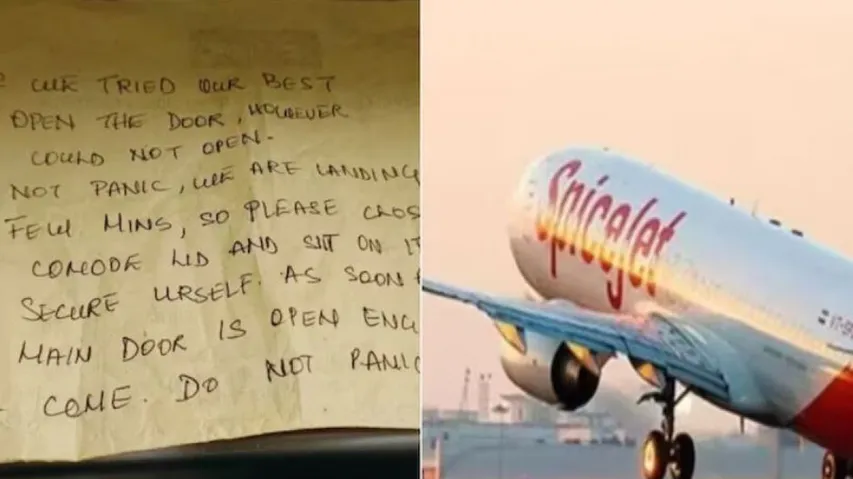 WE TRIED OUR BEST
OPEN THE DOOR, HOWEVER
COULD NOT OPEN-
NOT PANIC, WE ARE LANDING
FEW MINS, SO PLEASE CLOS
COMODE LID AND SIT ON IT
SECURE URSELF. AS SOON
MAIN DOOR IS OPEN ENG
COME. DO NOT PANIC
SpiceJet